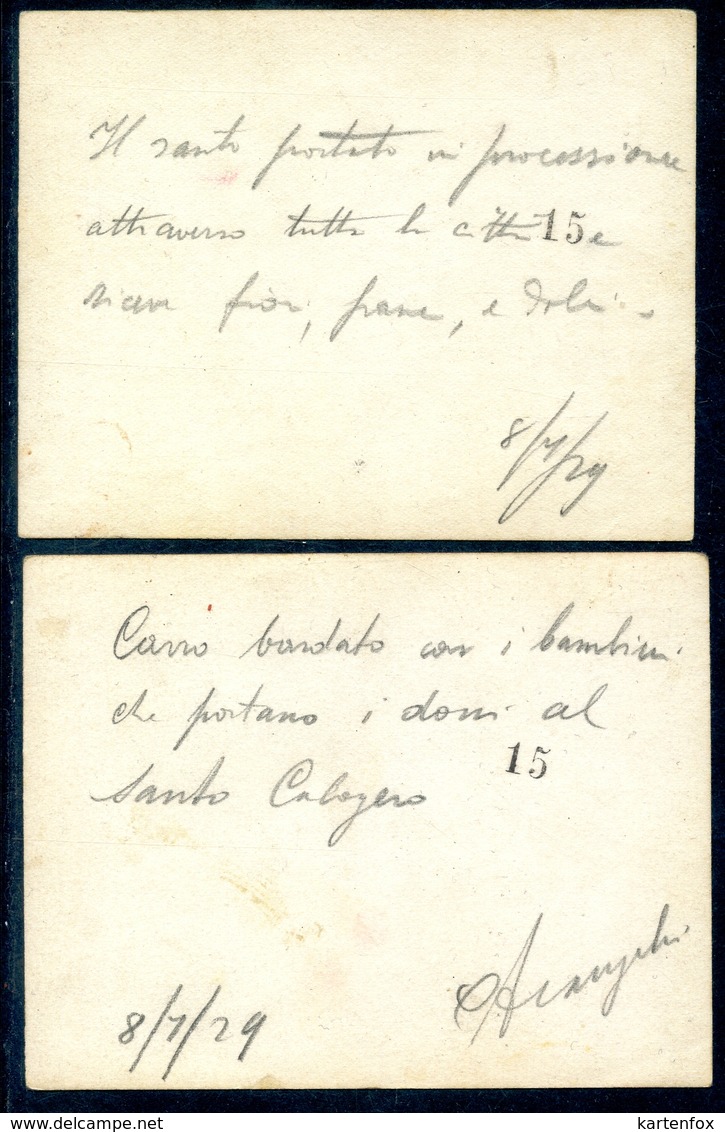 Il santo portato in processione
attraverso tutta la città e
15
riceve fiori, pane, e dolci.
8/7/29
Carro bardato con i bambini
che portano i doni al
15
Santo Calogero
8/7/29
kartenfox